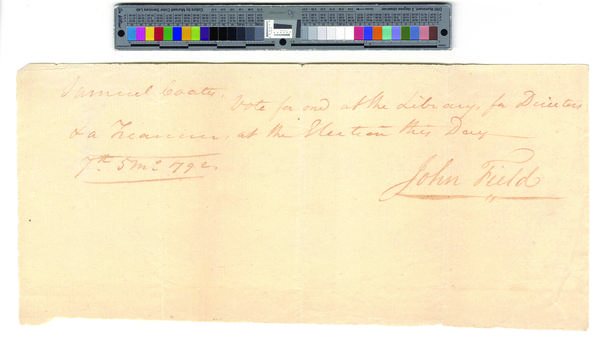 Samuel Coates
Vote for me at the Library, for Directors
& a Treasurer, at the Election this Day
7th 5mo 792
John Field